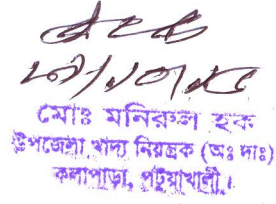 মোঃ মনিরুল হক
উপজেলা খাদ্য নিয়ন্ত্রক (অঃ দাঃ)
কলাপাড়া, পটুয়াখালী।